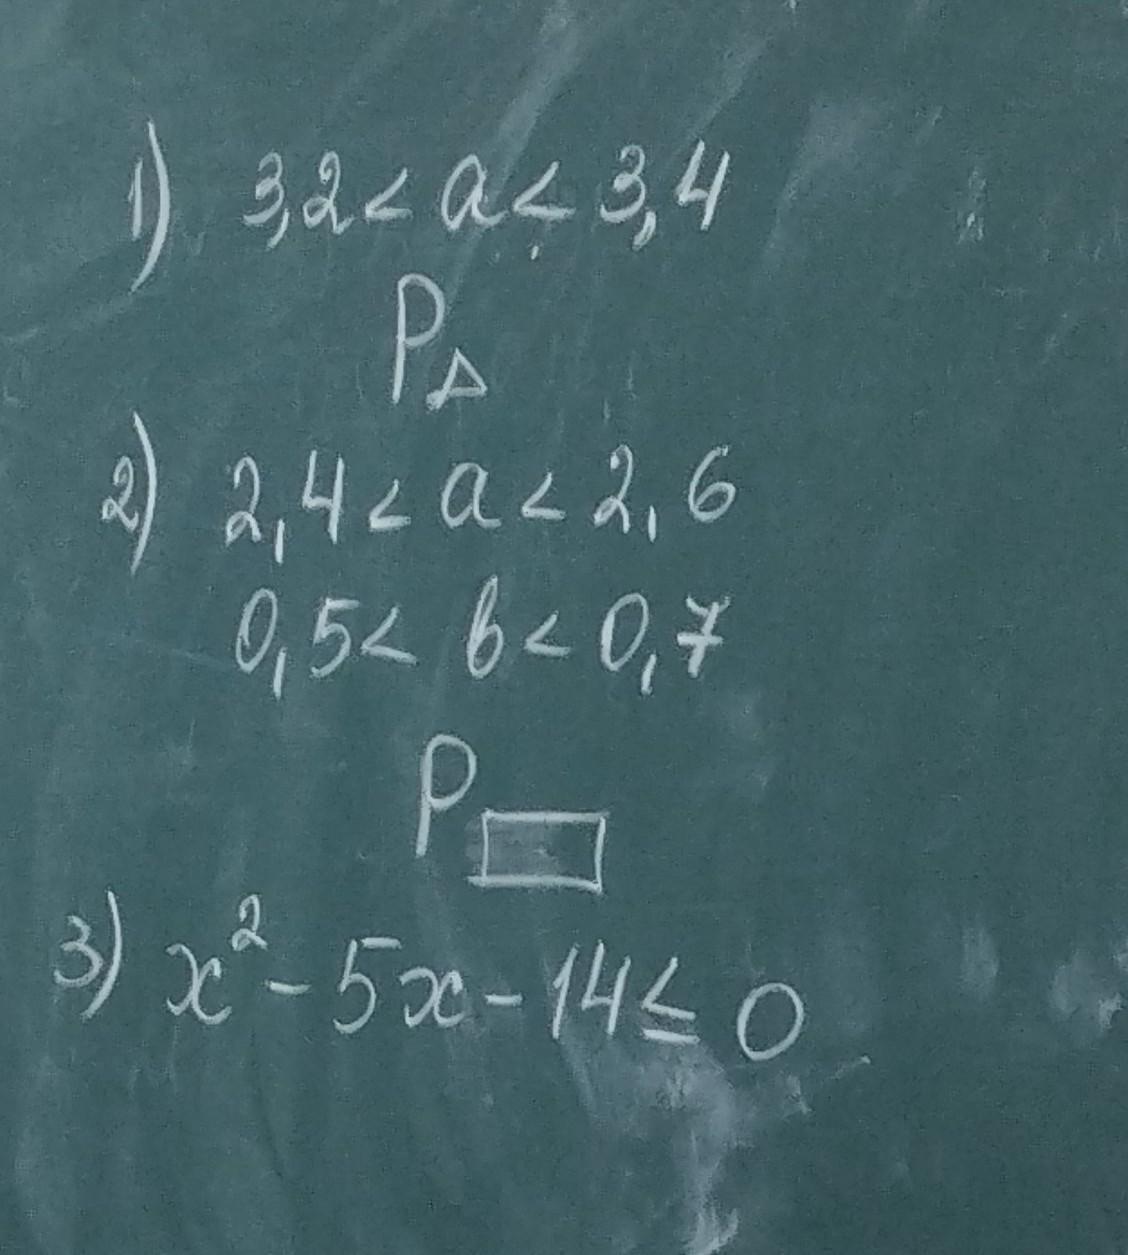 1) 3,2 < a < 3,4
P△
2) 2,4 < a < 2,6
0,5 < b < 0,7
P▭
3) x² - 5x - 14 ≤ 0